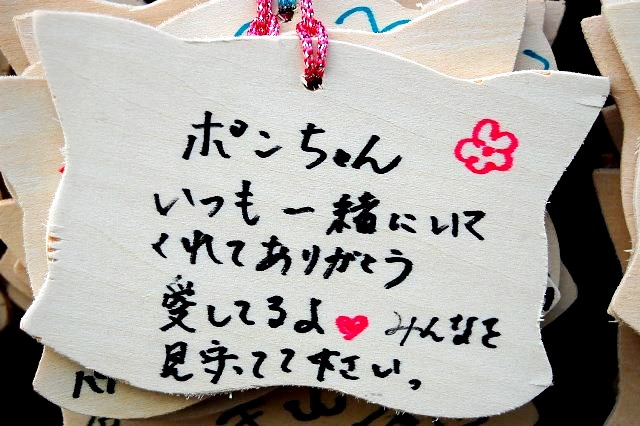 ポンちゃん
いつも一緒にいて
くれてありがとう
愛してるよ♥みんなを
見守ってて下さい。